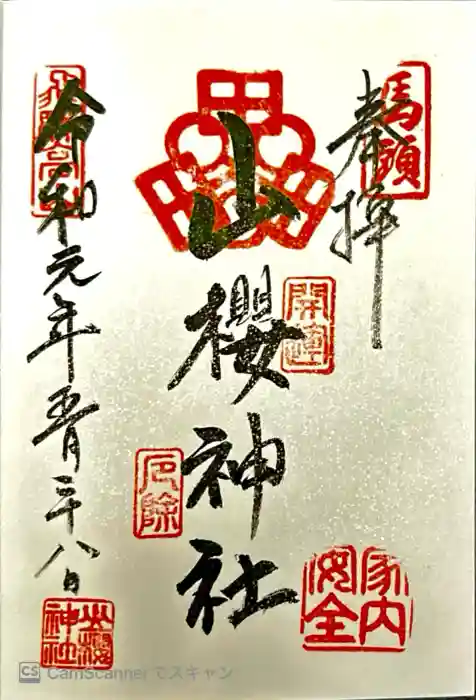 奉拝
馬頭
開運
山櫻神社
厄除
家内安全
令和元年五月二十八日
山櫻神社
CS CamScannerでスキャン